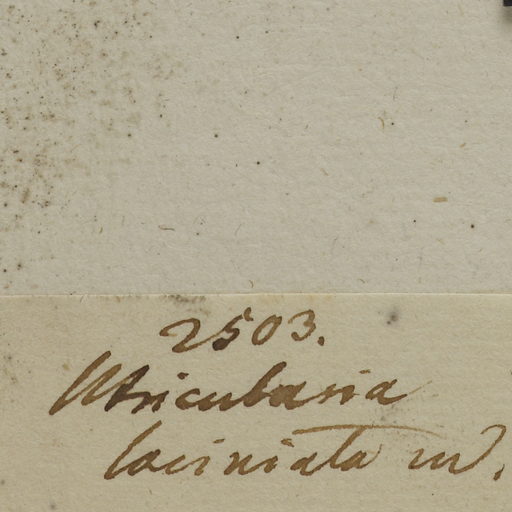 2503.
Utricularia
laciniata m.